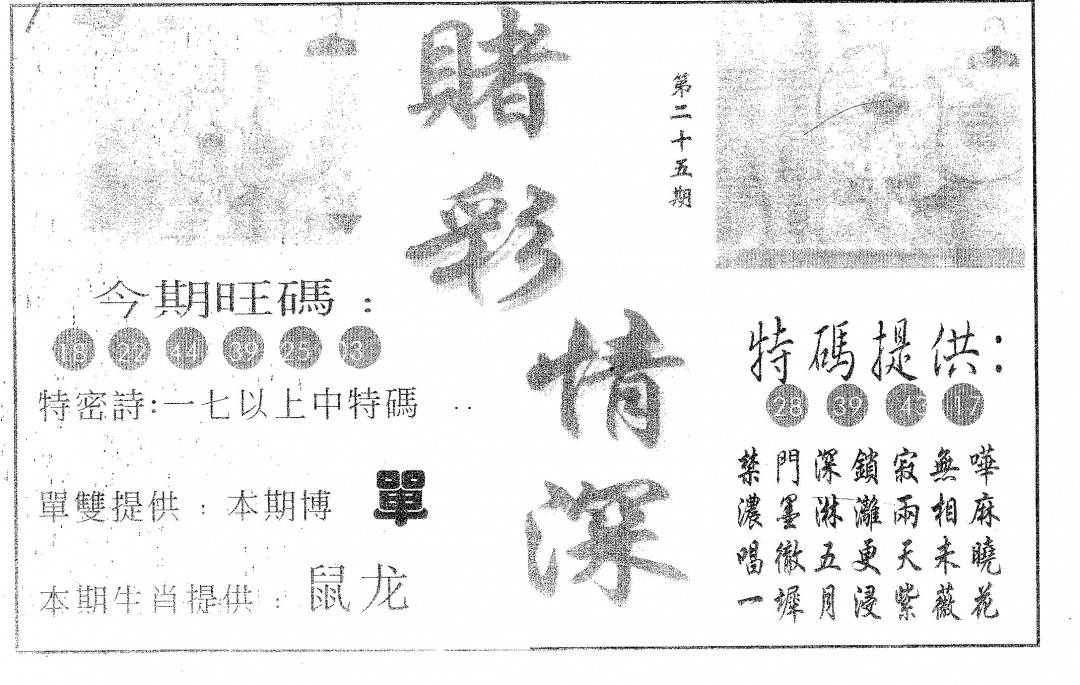 賭彩情深
第二十五期
今期旺碼：
18 22 44 39 25 03
特密詩:一七以上中特碼
單雙提供：本期博 單
本期生肖提供：鼠龙
特碼提供：
28 39 43 17
禁門深鎖寂無嘩
濃墨淋灕兩相麻
唱徹五更天未曉
一墀月浸紫薇花